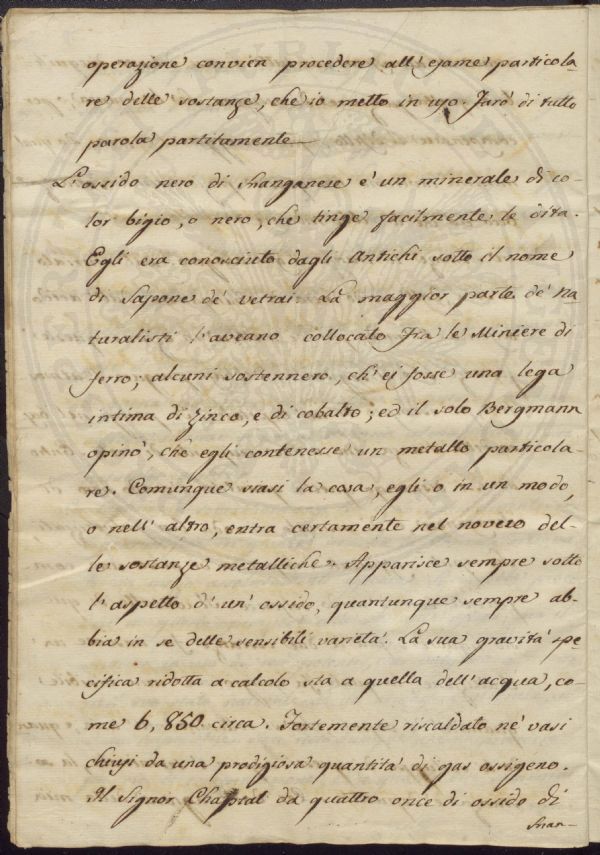 operazione convien procedere all' esame particola
re delle sostanze, che io metto in uso. Farò di tutto
parola partitamente
L' ossido nero di Manganese è un minerale di co
lor bigio, o nero, che tinge facilmente le dita.
Egli era conosciuto dagli Antichi sotto il nome
di Sapone de' vetrai. La maggior parte de' Na
turalisti l' aveano collocato fra le Miniere di
ferro; alcuni sostennero, ch' ei fosse una lega
intima di zinco, e di cobalto; ed il solo Bergmann
opinò, che egli contenesse un metallo particola-
re. Comunque siasi la cosa, egli o in un modo,
o nell' altro, entra certamente nel novero del-
le sostanze metalliche. Apparisce sempre sotto
l' aspetto d' un' ossido, quantunque sempre ab-
bia in se delle sensibili varietà. La sua gravità spe
cifica ridotta a calcolo sta a quella dell' acqua, co-
me 6, 850 circa. Fortemente riscaldato ne' vasi
chiusi da una prodigiosa quantità di gas ossigeno.
Il Signor Chaptal da quattro once di ossido di
Man-